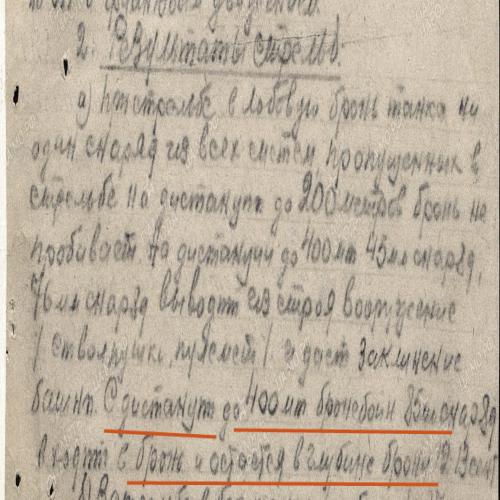 2. Результаты стрельб.
а) При стрельбе в лобовую бронь танка ни
один снаряд из всех систем пропущенных в
стрельбе на дистанции до 200 метров бронь не
пробивает. На дистанции до 400 мт 45мм снаряд,
76мм снаряд выводит из строя вооружение
/ствол пушки, пулемет/ и дает заклинение
башни. С дистанции до 400 мт бронебойн 85мм снаряд
входит в бронь и остается в глубине брони